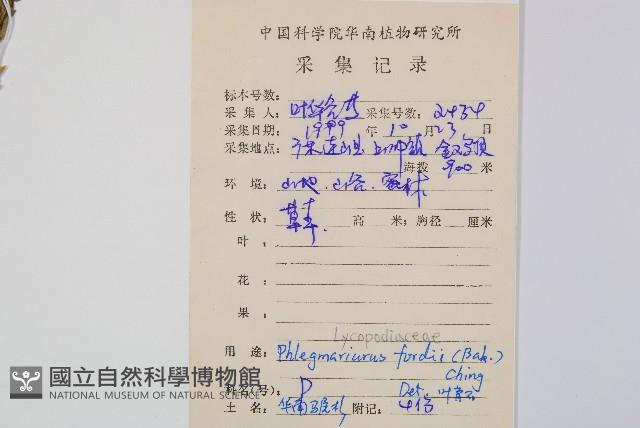 中国科学院华南植物研究所
采集记录
标本号数:
采集人: 叶华谷 采集号数: 2434
采集日期: 1999 年 10 月 23 日
采集地点: 广东连山县
海拔 900 米
环境: 山地.山谷.密林
性状: 草本. 高 米; 胸径 厘米
叶:
花:
果:
Lycopodiaceae
用途: Phlegmariurus fordii (Bak.)
Ching
科名(号): P Det. 叶育石
土名: 华南马尾杉 附记: 4份
國立自然科學博物館
NATIONAL MUSEUM OF NATURAL SCIENCE